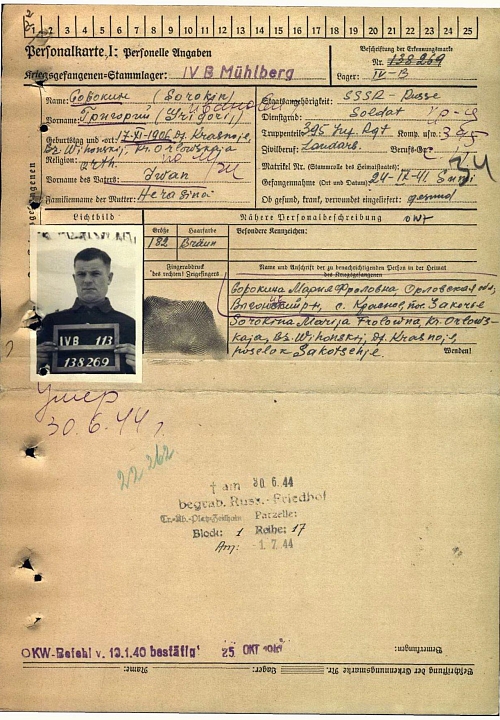 1 2 3 4 5 6 7 8 9 10 11 12 13 14 15 16 17 18 19 20 21 22 23 24 25
Personalkarte I: Personelle Angaben
Kriegsgefangenen-Stammlager: IV B Mühlberg
Beschriftung der Erkennungsmarke
Nr. 138269
Lager: IV-B
Name: Сорокин (Sorokin)
Vorname: Григорий (Grigorij) Иванович
Geburtstag und -ort: 17.XI-1906, Df. Krasnoje,
Bz. Wihonskij, Kr. Orlowskaja
Religion: orth.
Vorname des Vaters: Iwan
Familienname der Mutter:
Staatsangehörigkeit: SSSR - Russe
Dienstgrad: Soldat
Truppenteil: 395 Inf. Rgt Komp. usw.:
Zivilberuf: Landarb. Berufs-Gr.:
Matrikel Nr. (Stammrolle des Heimatstaates):
Gefangennahme (Ort und Datum): 24-IX-41
Ob gesund, krank, verwundet eingeliefert: gesund
Lichtbild
Nähere Personalbeschreibung
Größe Haarfarbe Besondere Kennzeichen:
182 Braun
Fingerabdruck
des rechten! Zeigefingers
Name und Anschrift der zu benachrichtigenden Person in der Heimat
des Kriegsgefangenen
Сорокина Мария Фроловна Орловская обл,
с. Красное, пос. Закотье
Sorokina Marija Frolowna, Kr. Orlows-
kaja, Bz. Wihonskij, Df. Krasnoje,
poselok Sakotschje.
Wenden!
IVB 113
138269
Умер
30.6.44 г.
22262
† am 30 6. 44
begrab. Russ.-Friedhof
Tr.-Üb.-Platz-Zeithain Parzelle:
Block: 1 Reihe: 17
Am: -1. 7. 44
OKW-Befehl v. 10.1.40 bestätigt 25. OKT
Bemerkungen:
Beschriftung der Erkennungsmarke Nr. Lager: Name: